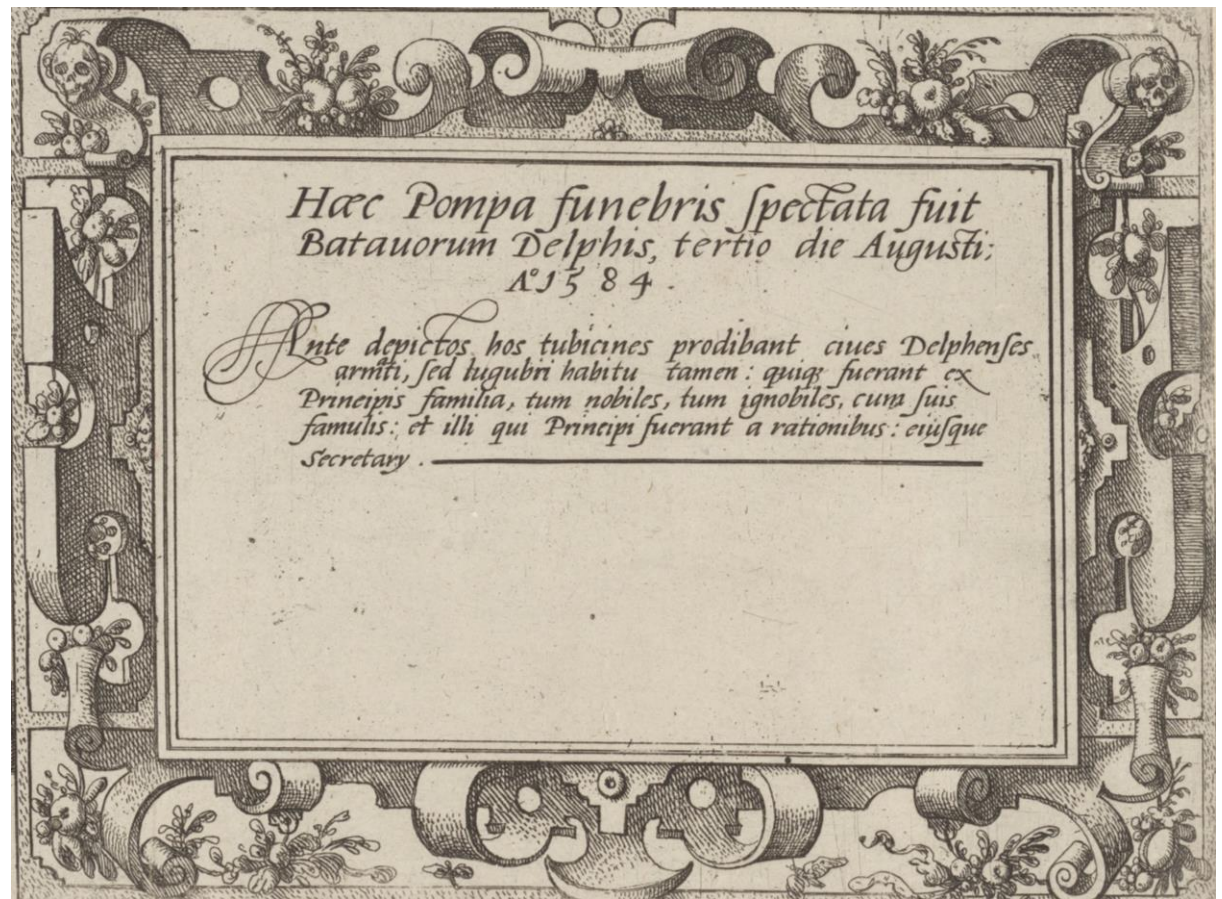 Hæc Pompa funebris ſpectata fuit
Batauorum Delphis, tertio die Augusti;
A° 1584.
Ante depictos hos tubicines prodibant ciues Delphenſes
armati, ſed lugubri habitu tamen: quiqꝫ fuerant ex
Principis familia, tum nobiles, tum ignobiles, cum ſuis
famulis: et illi qui Principi fuerant a rationibus: eiuſque
Secretary.